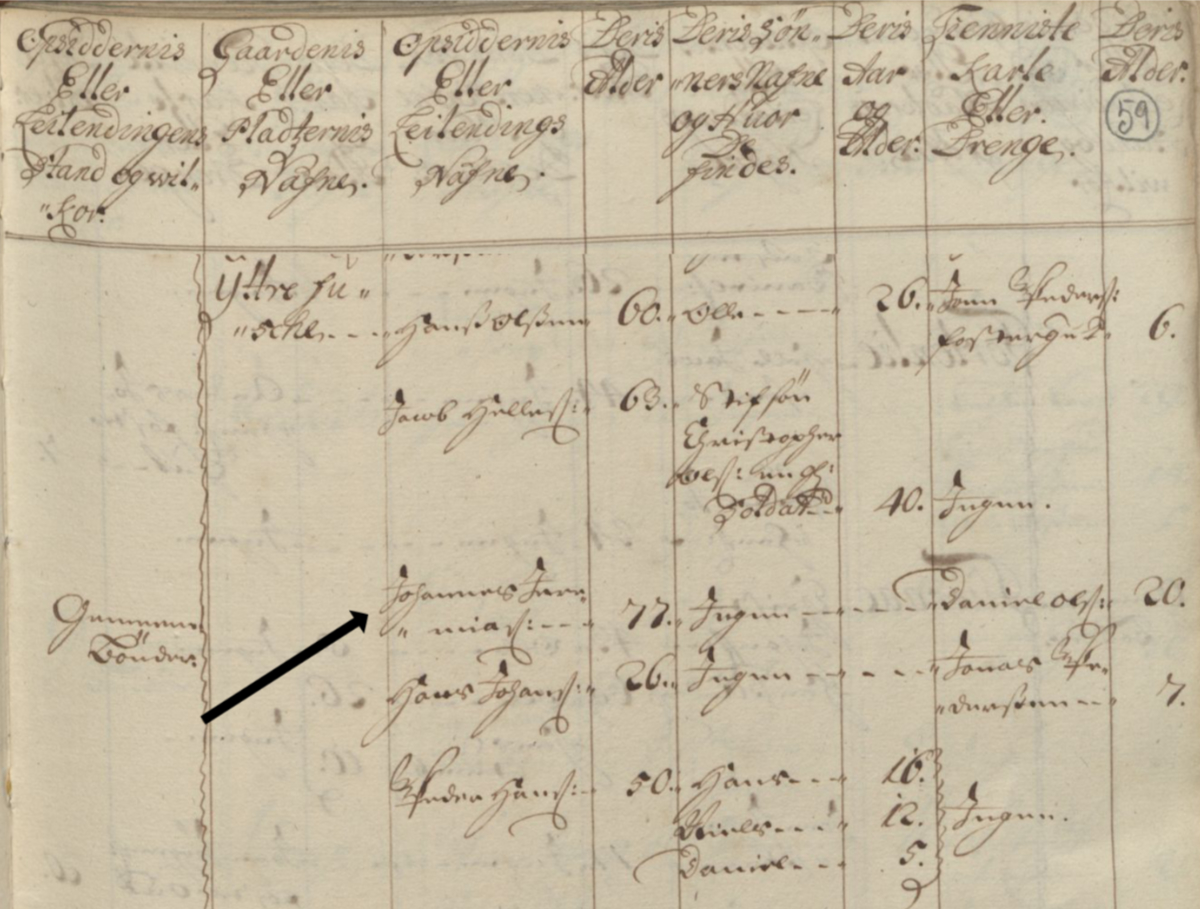 Opsiddernis
Eller
Leilendingens
Stand og wil„
„kor.
Gaardenis
Eller
Pladternis
Nafne.
Opsiddernis
Eller
Leilendings
Nafne.
Deris
Alder
Deris Søn„
„ners Nafne
og Huor
De
findes.
Deris
Aar
og
Alder:
Tienniste
Karle
Eller
Drenge.
Deris
Alder.
59
Yttre Fu„
„schl - - „ Hanß Olßenn 60. „ Olle - - - - „ 26. „ Jonn Peders:
6.
Jacob Helless: 63. Stifsøn
Christopher
Ols:
Soldat - - „ 40. Ingen.
Gemeene
Bønder:
Johannes Jere„
„ mias: - - „ 77. Ingen - - - - - Daniel Ols: 20.
Hans Johans: 26. Ingen - - - - „ Jonas Pe„
„derßenn - - 7.
Peder Hans: - 50. Hans - - „ 16.
Niels - - „ 12. Ingen.
Daniel - - 5.